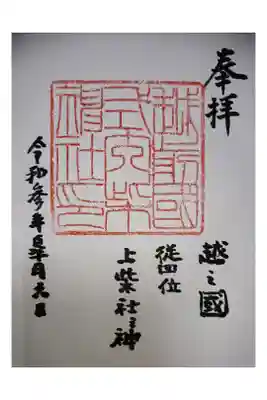 奉拝
越之國
従四位
上柴社之神
越前國
式内柴
神社印
令和参年月六日